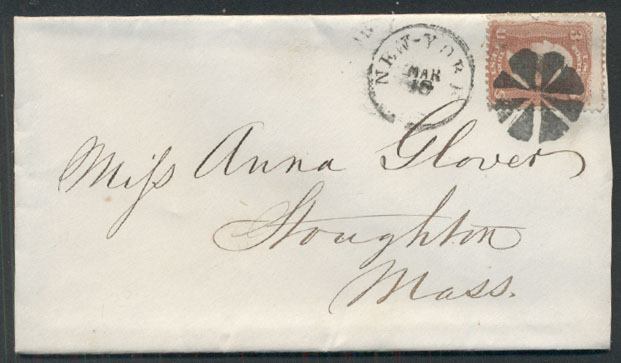 NEW-YORK
MAR
18
3
Miſs Anna Glover
Stoughton
Mass.